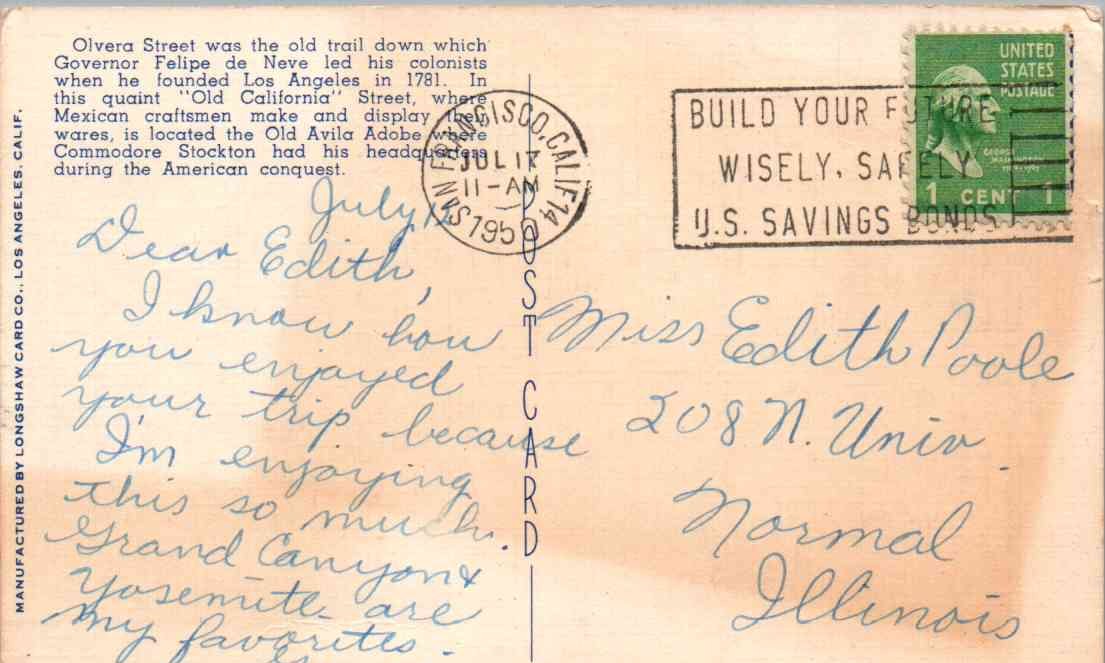 Olvera Street was the old trail down which
Governor Felipe de Neve led his colonists
when he founded Los Angeles in 1781. In
this quaint "Old California" Street, where
Mexican craftsmen make and display their
wares, is located the Old Avila Adobe where
Commodore Stockton had his headquarters
during the American conquest.
MANUFACTURED BY LONGSHAW CARD CO., LOS ANGELES, CALIF.
SAN FRANCISCO, CALIF. 14
JUL 17
11-AM
1950
BUILD YOUR FUTURE
WISELY, SAFELY
U.S. SAVINGS BONDS
UNITED
STATES
POSTAGE
GEORGE
WASHINGTON
1 CENT 1
POST CARD
July
Dear Edith,
I know how
you enjoyed
your trip because
I'm enjoying
this so much.
Grand Canyon &
Yosemite are
my favorites.
Miss Edith Poole
208 N. Univ.
Normal
Illinois